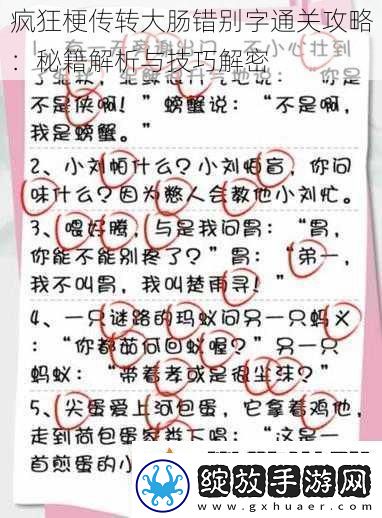 疯狂梗传转大肠错别字通关攻略
：秘籍解析与技巧解密
不小心壮到
气地说：“你是
不是侠啊！”螃蟹说：“不是啊，
我是螃蟹。”
2、小刘怕什么？小刘怕盲，你问
味什么？因为憨人会教他小刘忙。
3、喂好腾，与是我问胃：“胃，
你能不能别疼了？”胃：“弟一，
我不叫胃，我叫楚雨寻！”
4、一只谜路的玛蚁问另一只蚂义
：“你都茄何回蚁喔？”另一只
蚂蚁：“带着孝或是很尘沫？”
5、尖蛋爱上河包蛋，它拿着鸡他，
走到荷包蛋家娄下唱：“这是一
首煎蛋的小
绽放手游网
www.gxhuaer.com